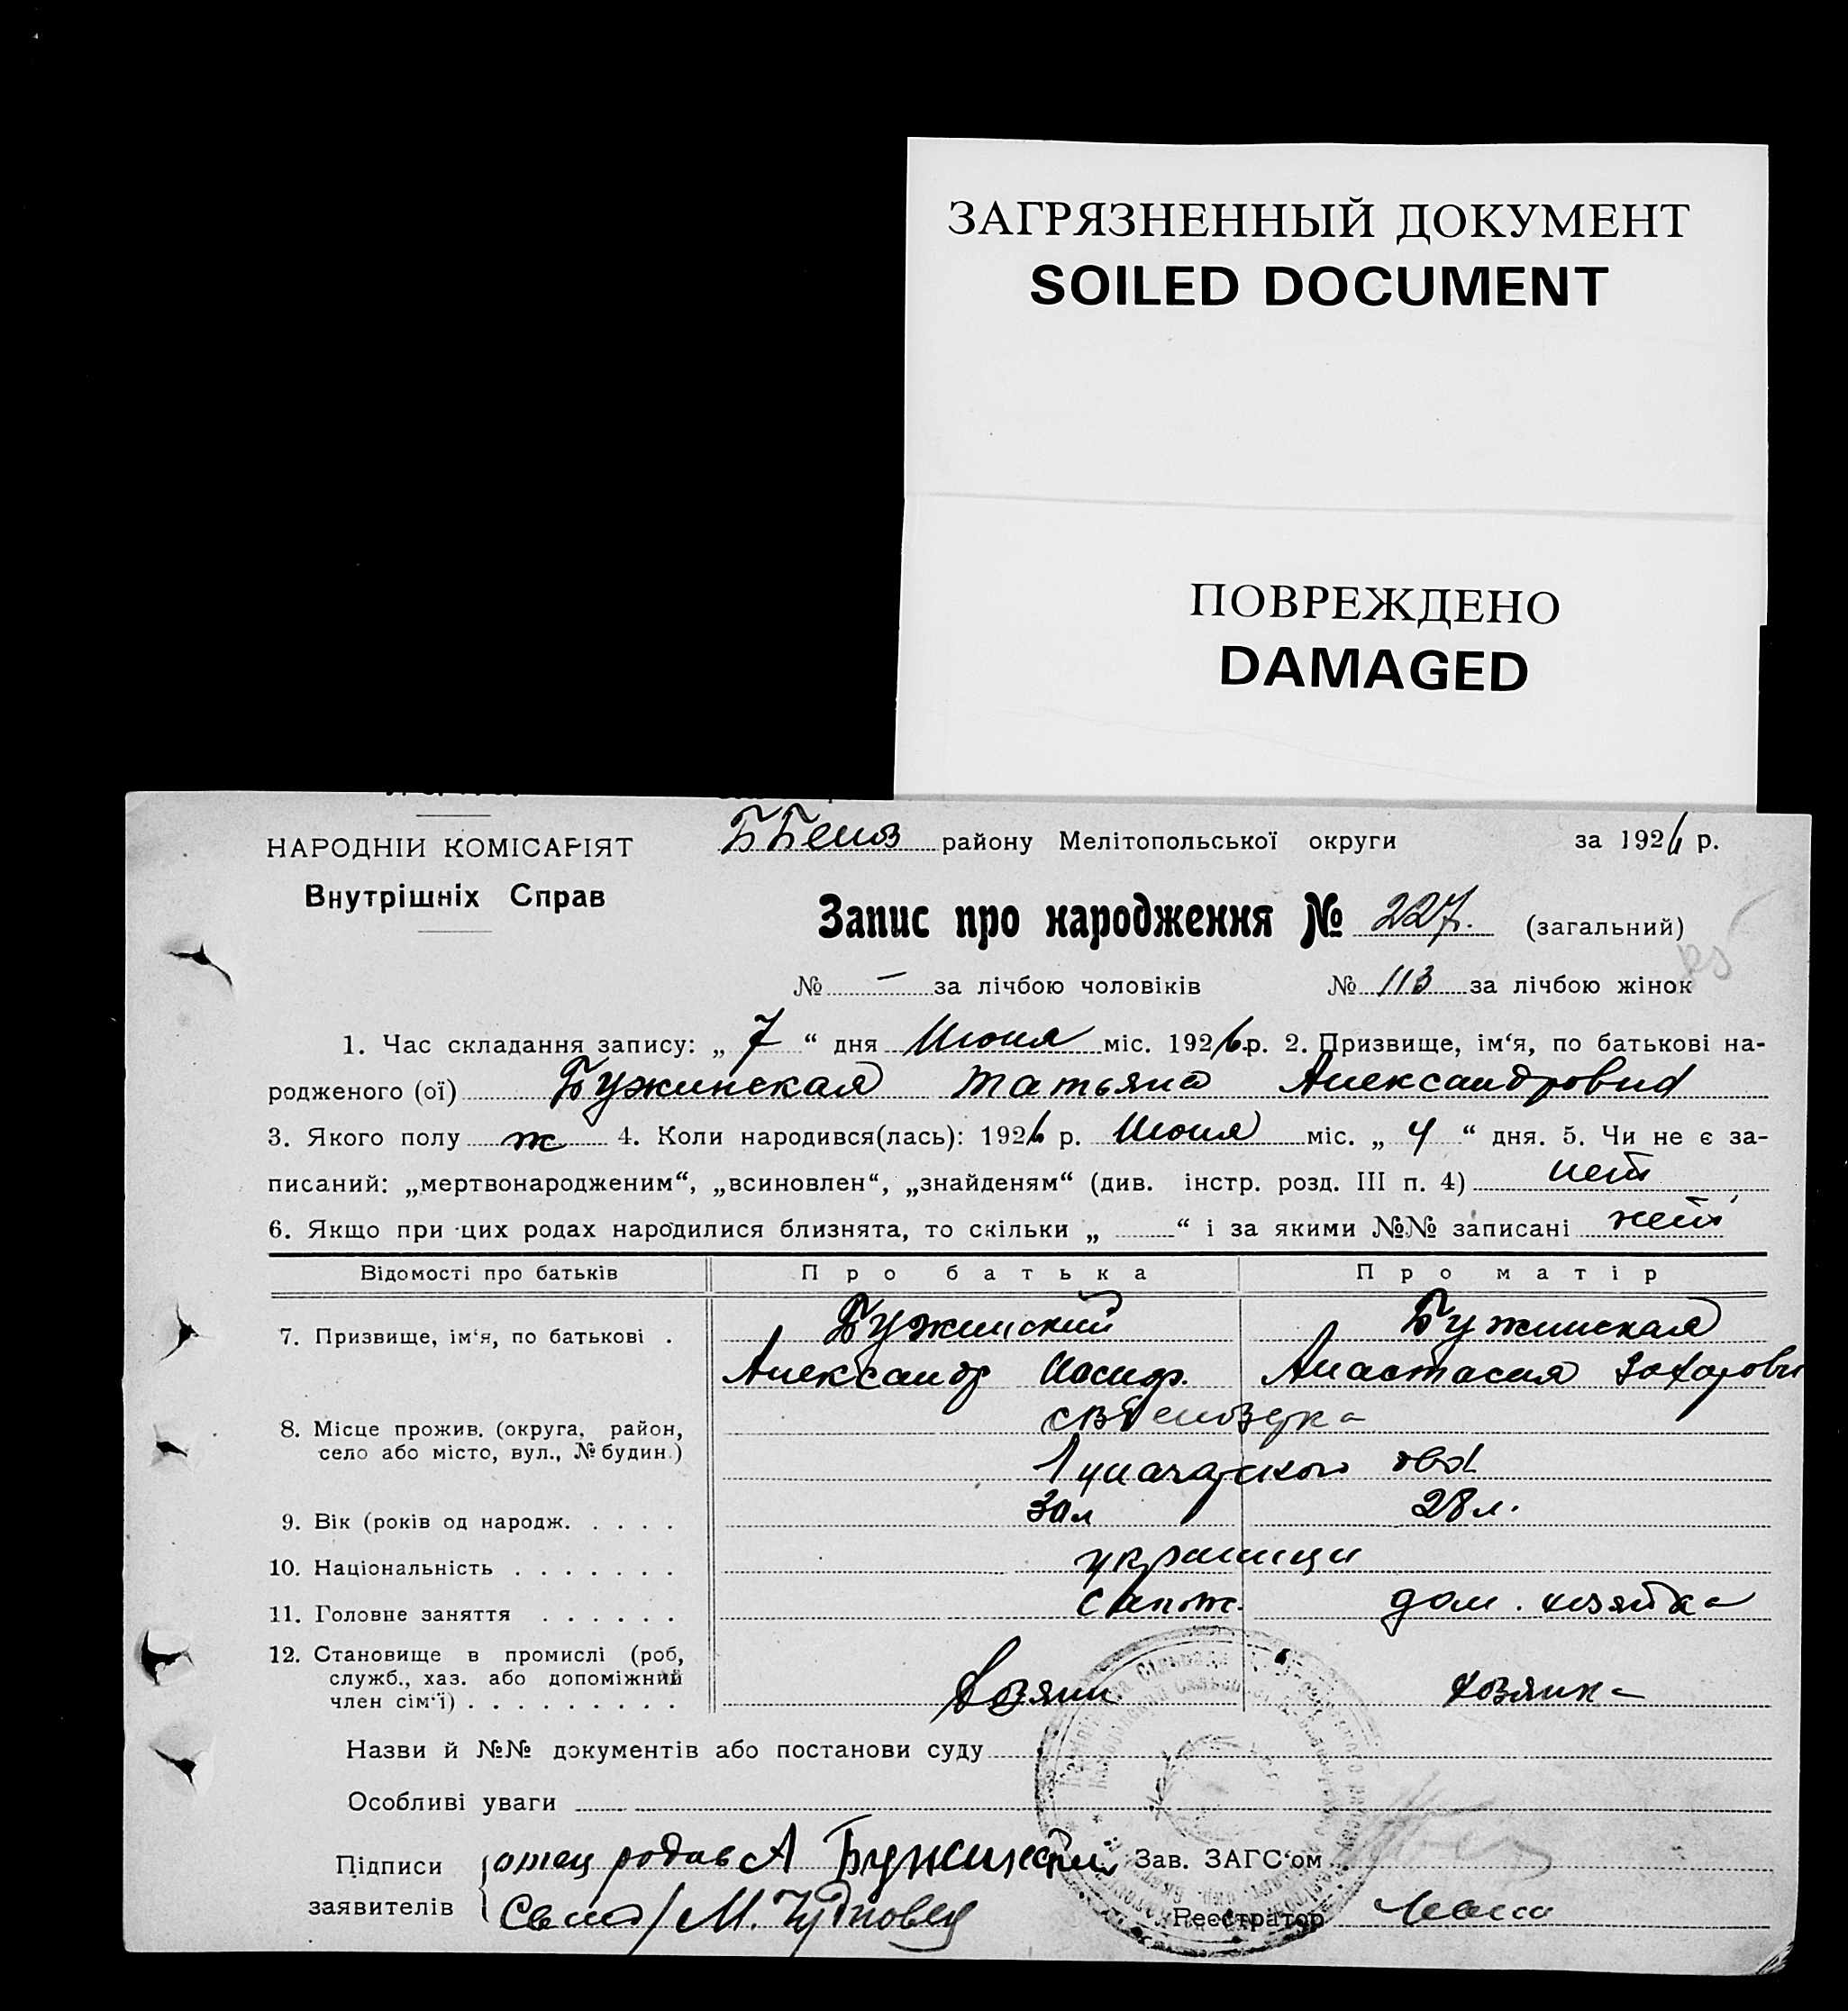 ЗАГРЯЗНЕННЫЙ ДОКУМЕНТ
SOILED DOCUMENT
ПОВРЕЖДЕНО
DAMAGED
НАРОДНІЙ КОМІСАРІЯТ
Внутрішніх Справ
району Мелітопольської округи за 1926 р.
Запис про народження № 227. (загальний)
№ — за лічбою чоловіків № 113 за лічбою жінок
1. Час складання запису: „ 7 “ дня Июня міс. 1926 р. 2. Призвище, ім‘я, по батькові на-
родженого (ої) Бужинская Татьяна Александровна
3. Якого полу ж 4. Коли народився(лась): 1926 р. Июня міс. „ 4 “ дня. 5. Чи не є за-
писаний: „мертвонародженим“, „всиновлен“, „знайденям“ (див. інстр. розд. III п. 4) нет
6. Якщо при цих родах народилися близнята, то скільки „ “ і за якими №№ записані нет
Відомості про батьків Про батька Про матір
7. Призвище, ім‘я, по батькові . Бужинский Бужинская
Александр Иосиф. Анастасия Захаровн
8. Місце прожив. (округа, район,
село або місто, вул., № будин.)
9. Вік (років од народж. . . . . 30 л 28 л.
10. Національність . . . . . . . украинцы
11. Головне заняття . . . . . . сапож. дом. хозяйка
12. Становище в промислі (роб,
служб., хаз. або допоміжний
член сім‘ї) . . . . . . . . . Хозяин хозяйка
Назви й №№ документів або постанови суду
Особливі уваги
Підписи отец А Бужинский Зав. ЗАГС‘ом
заявителів М. Чудновец Реєстратор